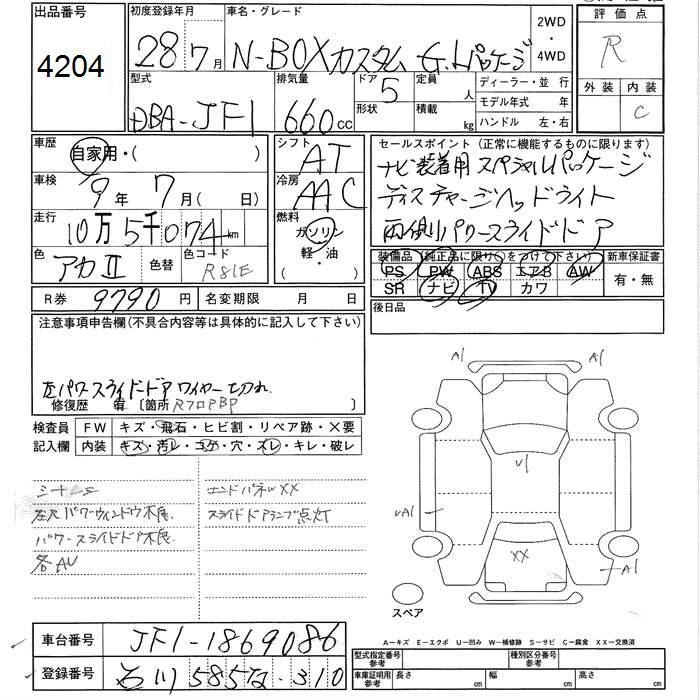 出品番号
4204
初度登録年月
28 7月
車名・グレード
N-BOXカスタム G.Lパッケージ
2WD
・
4WD
評価点
R
外装 内装
C
型式
DBA-JF1
排気量
660cc
ドア 5
形状
定員 人
積載 kg
ディーラー・並行
モデル年式 年
ハンドル 左・右
車歴
自家用・( )
シフト
AT
車検
9年 7月( 日)
冷房
AAC
走行
10万5千074km
燃料
ガソリン
軽・油
( )
色
アカII
色替
色コード
R81E
セールスポイント(正常に機能するものに限ります)
ナビ装着用スペシャルパッケージ
ディスチャージヘッドライト
両側パワースライドドア
装備品 (純正品に限り○をつけて下さい)
PS PW ABS エアB AW
SR ナビ TV カワ
新車保証書
有・無
R券 9790円
名変期限 月 日
後日品
注意事項申告欄(不具合内容等は具体的に記入して下さい)
左パワースライドドアワイヤー切れ
修復歴 有 [箇所 RフロアBP ]
検査員
記入欄
FW キズ・飛石・ヒビ割・リペア跡・×要
内装 キズ・汚レ・コゲ・穴・スレ・キレ・破レ
エンドパネルXX
左R パワーウィンドウ不良
スライドドアランプ点灯
パワースライドドア不良
各AU
A1 A1
U1
UA1
XX
A1
スペア
A-キズ E-エクボ U-凹み W-補修跡 S-サビ C-腐食 XX-交換済
車台番号 JF1-1869086
登録番号 石川 585 な 310
型式指定番号
参考
種別区分番号
参考
車庫証明用
参考
長さ cm 幅 cm 高さ cm